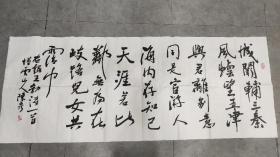 城阙辅三秦
风烟望五津
与君离别意
同是宦游人
海内存知己
天涯若比
邻无为在
歧路儿女共
沾巾
右录王勃诗一首